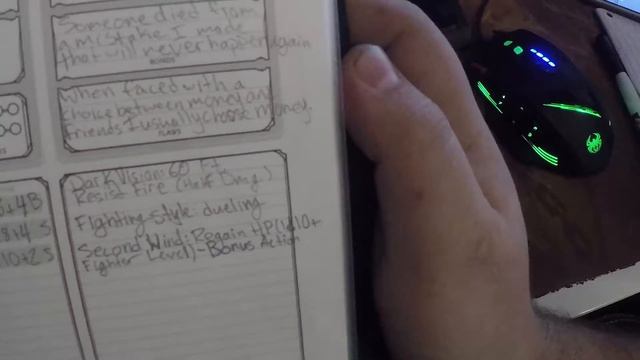 Someone died from
a mistake I made
that will never happen again
BONDS
When faced with a
choice between money and
friends I usually choose money.
FLAWS
8+4 S
10+2 S
Dark Vision: 60 Ft
Resist Fire (Half Dmg.)
Fighting style: dueling
Second Wind: Regain HP (1d10+
Fighter Level) - Bonus Action